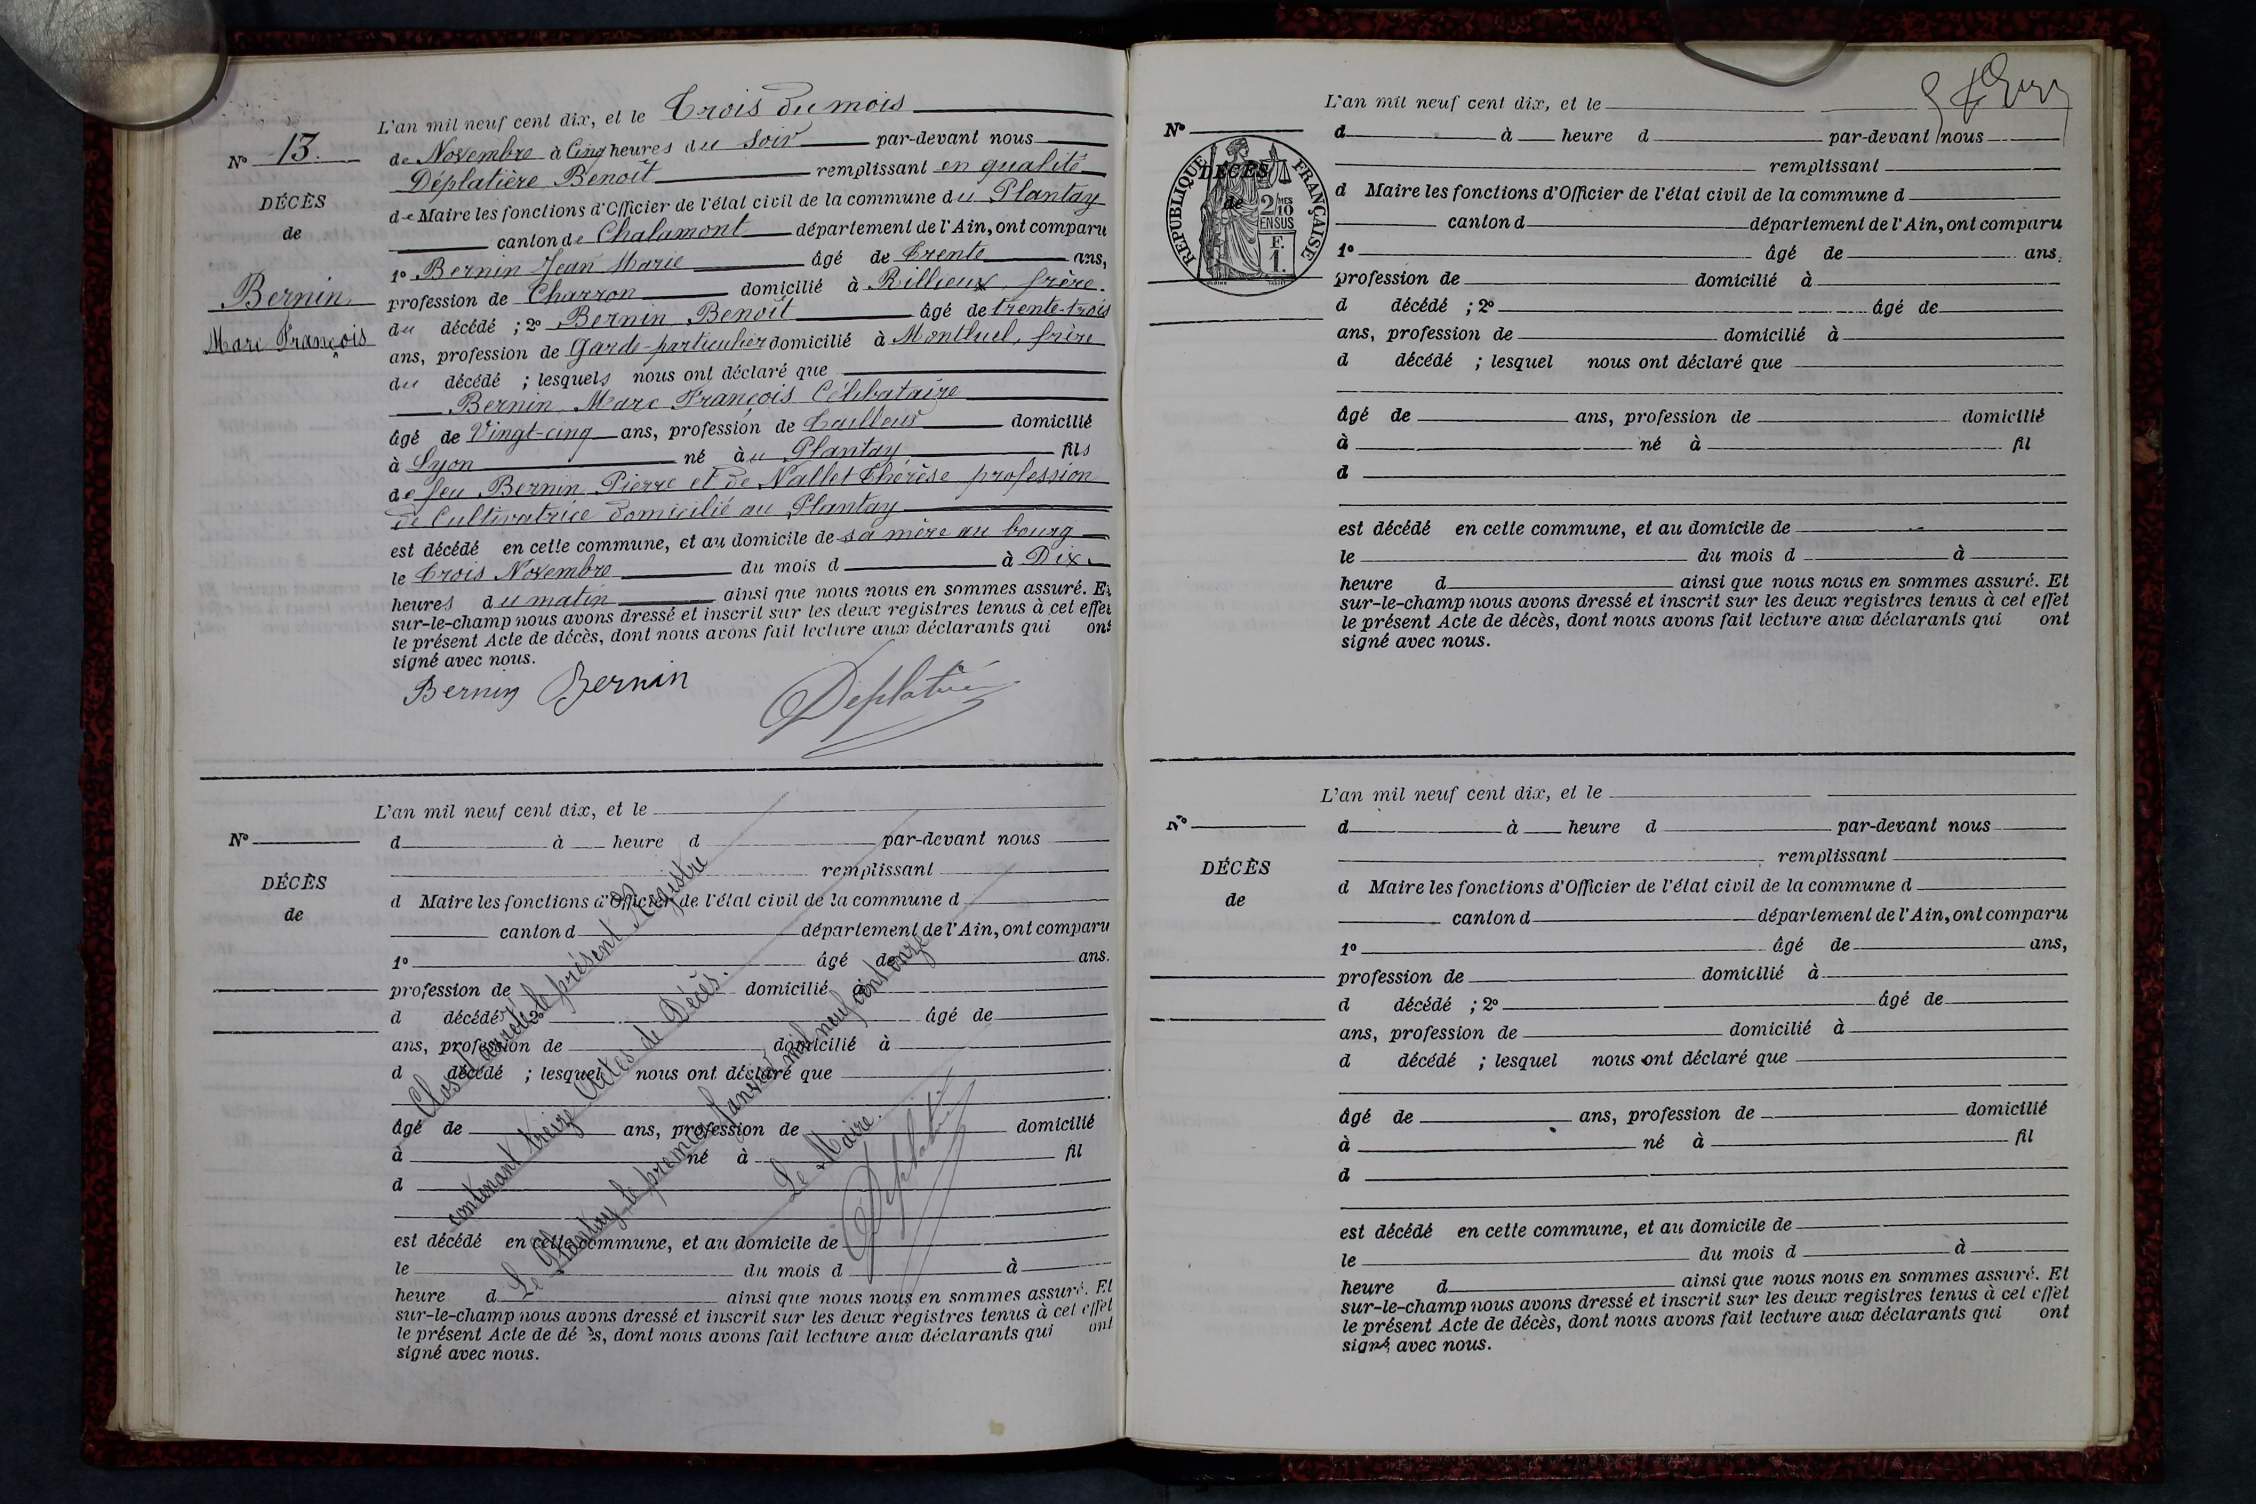 L'an mil neuf cent dix, et le Trois du mois
N° 13.
de Novembre à Cinq heures du soir par-devant nous
Déplatière Benoît remplissant en qualité
DÉCÈS
de Maire les fonctions d'Officier de l'état civil de la commune du Plantay
de
canton de Chalamont département de l'Ain, ont comparu
1° Bernin Jean Marie âgé de Trente ans,
Bernin
profession de Charron domicilié à Rillieux, frère.
du décédé ; 2° Bernin Benoît âgé de trente-trois
Marc François
ans, profession de Garde-particulier domicilié à Montluel, frère
du décédé ; lesquels nous ont déclaré que
Bernin Marc François Célibataire
âgé de Vingt-cinq ans, profession de Tailleur domicilié
à Lyon né au Plantay fils
de feu Bernin Pierre et de Nallet Thérèse profession
de Cultivatrice domicilié au Plantay
est décédé en cette commune, et au domicile de sa mère au bourg
le Trois Novembre du mois d à Dix
heures du matin ainsi que nous nous en sommes assuré. Et
sur-le-champ nous avons dressé et inscrit sur les deux registres tenus à cet effet
le présent Acte de décès, dont nous avons fait lecture aux déclarants qui ont
signé avec nous.
Bernin Bernin Déplatière
L'an mil neuf cent dix, et le
N°
d à heure d par-devant nous
remplissant
DÉCÈS
d Maire les fonctions d'Officier de l'état civil de la commune d
de
canton d département de l'Ain, ont comparu
1° âgé de ans.
profession de domicilié à
d décédé ; 2° âgé de
ans, profession de domicilié à
d décédé ; lesquel nous ont déclaré que
âgé de ans, profession de domicilié
à né à fil
d
est décédé en cette commune, et au domicile de
le du mois d à
heure d ainsi que nous nous en sommes assuré. Et
sur-le-champ nous avons dressé et inscrit sur les deux registres tenus à cet effet
le présent Acte de décès, dont nous avons fait lecture aux déclarants qui ont
signé avec nous.
Clos et arrêté le présent Registre
contenant treize Actes de Décès.
Le Plantay le premier Janvier mil neuf cent onze
Le Maire.
Déplatière
L'an mil neuf cent dix, et le
N°
d à heure d par-devant nous
remplissant
DÉCÈS
d Maire les fonctions d'Officier de l'état civil de la commune d
de
canton d département de l'Ain, ont comparu
RÉPUBLIQUE FRANÇAISE
2/10 MES
EN SUS
F.
1.
1° âgé de ans,
profession de domicilié à
d décédé ; 2° âgé de
ans, profession de domicilié à
d décédé ; lesquel nous ont déclaré que
âgé de ans, profession de domicilié
à né à fil
d
est décédé en cette commune, et au domicile de
le du mois d à
heure d ainsi que nous nous en sommes assuré. Et
sur-le-champ nous avons dressé et inscrit sur les deux registres tenus à cet effet
le présent Acte de décès, dont nous avons fait lecture aux déclarants qui ont
signé avec nous.
L'an mil neuf cent dix, et le
N°
d à heure d par-devant nous
remplissant
DÉCÈS
d Maire les fonctions d'Officier de l'état civil de la commune d
de
canton d département de l'Ain, ont comparu
1° âgé de ans,
profession de domicilié à
d décédé ; 2° âgé de
ans, profession de domicilié à
d décédé ; lesquel nous ont déclaré que
âgé de ans, profession de domicilié
à né à fil
d
est décédé en cette commune, et au domicile de
le du mois d à
heure d ainsi que nous nous en sommes assuré. Et
sur-le-champ nous avons dressé et inscrit sur les deux registres tenus à cet effet
le présent Acte de décès, dont nous avons fait lecture aux déclarants qui ont
signé avec nous.